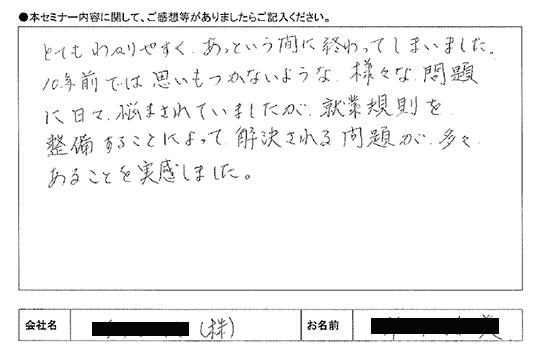 ●本セミナー内容に関して、ご感想等がありましたらご記入ください。
とてもわかりやすく、あっという間に終わってしまいました。
10年前では思いもつかないような、様々な問題
に日々、悩まされていましたが、就業規則を
整備することによって、解決される問題が、多々
あることを実感しました。
会社名 (株) お名前